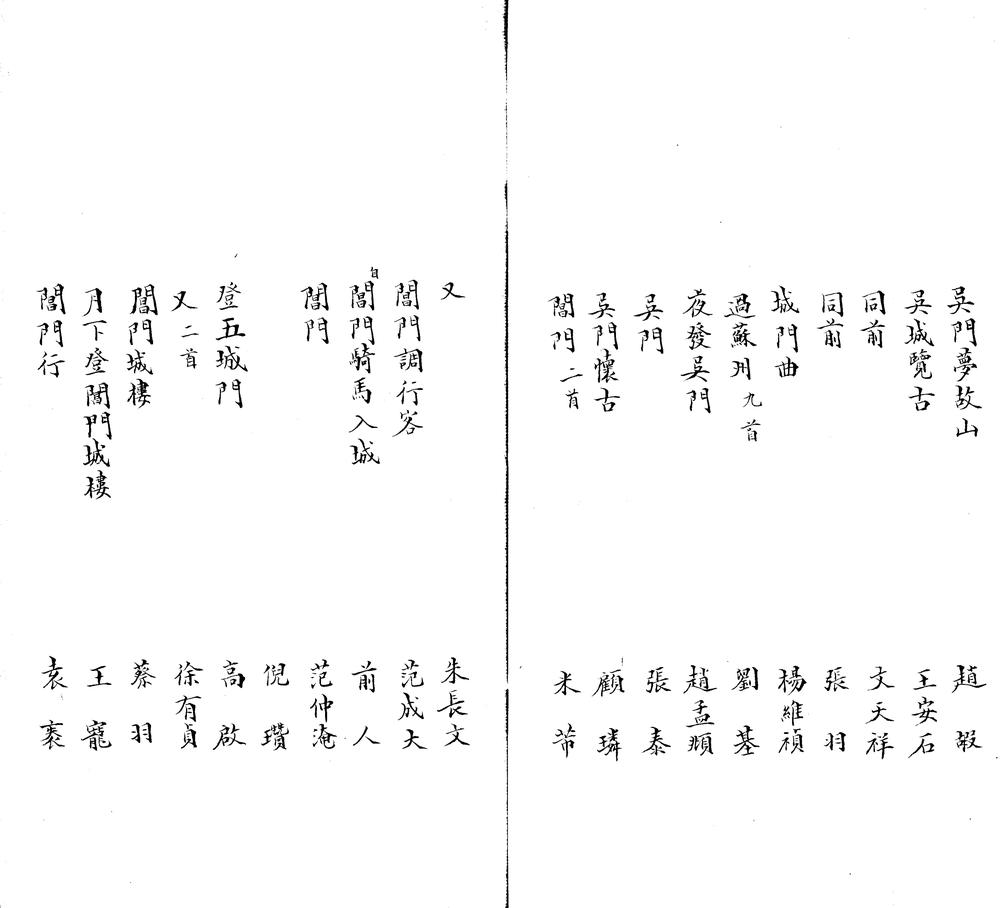 吳門夢故山 趙嘏
吳城覽古 王安石
同前 文天祥
同前 張羽
城門曲 楊維禎
過蘇州九首 劉基
夜發吳門 趙孟頫
吳門 張泰
吳門懷古 顧璘
閶門二首 米芾
又 朱長文
閶門調行客 范成大
自閶門騎馬入城 前人
閶門 范仲淹
倪瓚
登五城門 高啟
又二首 徐有貞
閶門城樓 蔡羽
月下登閶門城樓 王寵
閶門行 袁袠